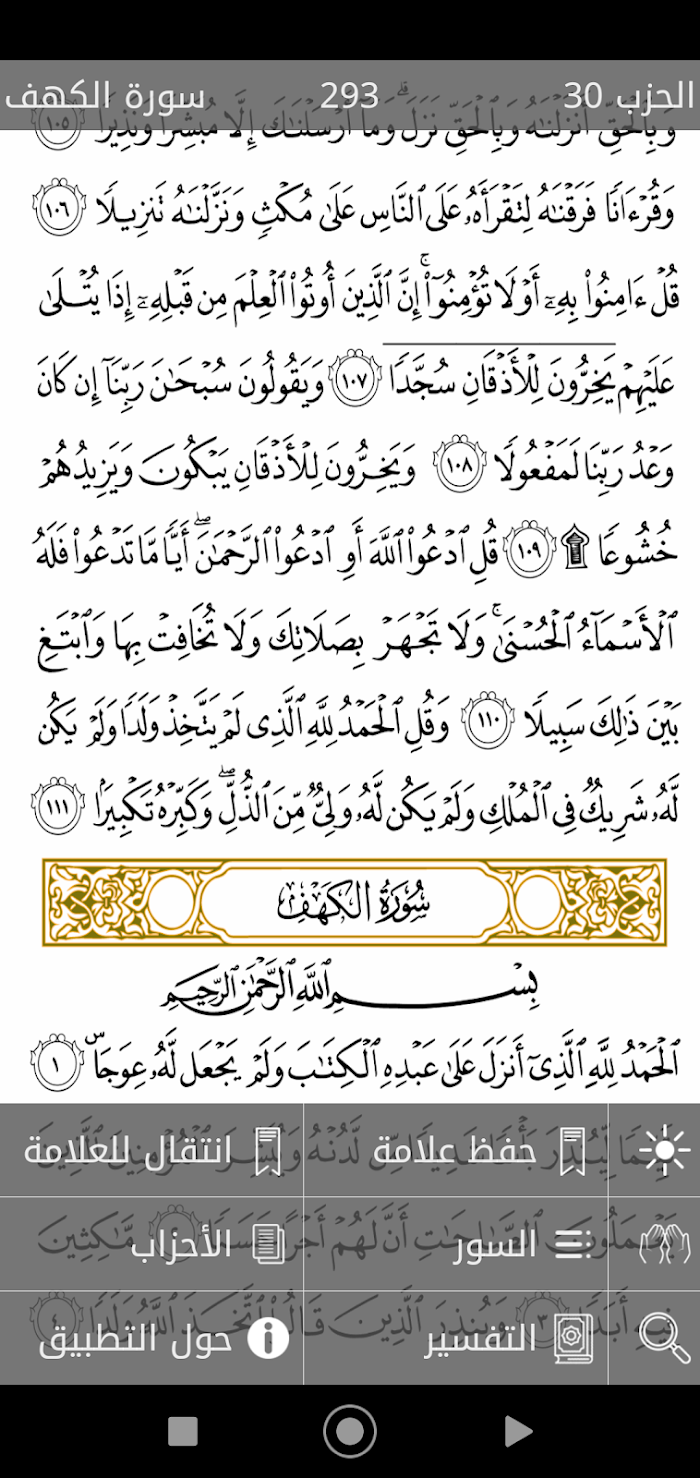 الحزب 30 293 سورة الكهف
وَبِالْحَقِّ أَنزَلْنَٰهُ وَبِالْحَقِّ نَزَلَ ۗ وَمَا أَرْسَلْنَٰكَ إِلَّا مُبَشِّرًا وَنَذِيرًا ١٠٥
وَقُرْءَانًا فَرَقْنَٰهُ لِتَقْرَأَهُۥ عَلَى ٱلنَّاسِ عَلَىٰ مُكْثٍ وَنَزَّلْنَٰهُ تَنزِيلًا ١٠٦
قُلْ ءَامِنُوا۟ بِهِۦٓ أَوْ لَا تُؤْمِنُوٓا۟ ۚ إِنَّ ٱلَّذِينَ أُوتُوا۟ ٱلْعِلْمَ مِن قَبْلِهِۦٓ إِذَا يُتْلَىٰ
عَلَيْهِمْ يَخِرُّونَ لِلْأَذْقَانِ سُجَّدًا ١٠٧ وَيَقُولُونَ سُبْحَٰنَ رَبِّنَآ إِن كَانَ
وَعْدُ رَبِّنَا لَمَفْعُولًا ١٠٨ وَيَخِرُّونَ لِلْأَذْقَانِ يَبْكُونَ وَيَزِيدُهُمْ
خُشُوعًا ۩ ١٠٩ قُلِ ٱدْعُوا۟ ٱللَّهَ أَوِ ٱدْعُوا۟ ٱلرَّحْمَٰنَ ۖ أَيًّا مَّا تَدْعُوا۟ فَلَهُ
ٱلْأَسْمَآءُ ٱلْحُسْنَىٰ ۚ وَلَا تَجْهَرْ بِصَلَاتِكَ وَلَا تُخَافِتْ بِهَا وَٱبْتَغِ
بَيْنَ ذَٰلِكَ سَبِيلًا ١١٠ وَقُلِ ٱلْحَمْدُ لِلَّهِ ٱلَّذِى لَمْ يَتَّخِذْ وَلَدًا وَلَمْ يَكُن
لَّهُۥ شَرِيكٌ فِى ٱلْمُلْكِ وَلَمْ يَكُن لَّهُۥ وَلِىٌّ مِّنَ ٱلذُّلِّ ۖ وَكَبِّرْهُ تَكْبِيرًۢا ١١١
سُورَةُ الكَهْفِ
بِسْمِ ٱللَّهِ ٱلرَّحْمَٰنِ ٱلرَّحِيمِ
ٱلْحَمْدُ لِلَّهِ ٱلَّذِىٓ أَنزَلَ عَلَىٰ عَبْدِهِ ٱلْكِتَٰبَ وَلَمْ يَجْعَل لَّهُۥ عِوَجَاۜ ١
حفظ علامة انتقال للعلامة
السور الأحزاب
التفسير حول التطبيق